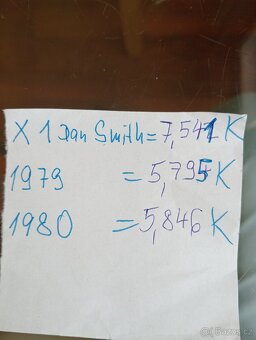 X 1 Dan Smith = 7,541 K
1979 = 5,795 K
1980 = 5,846 K